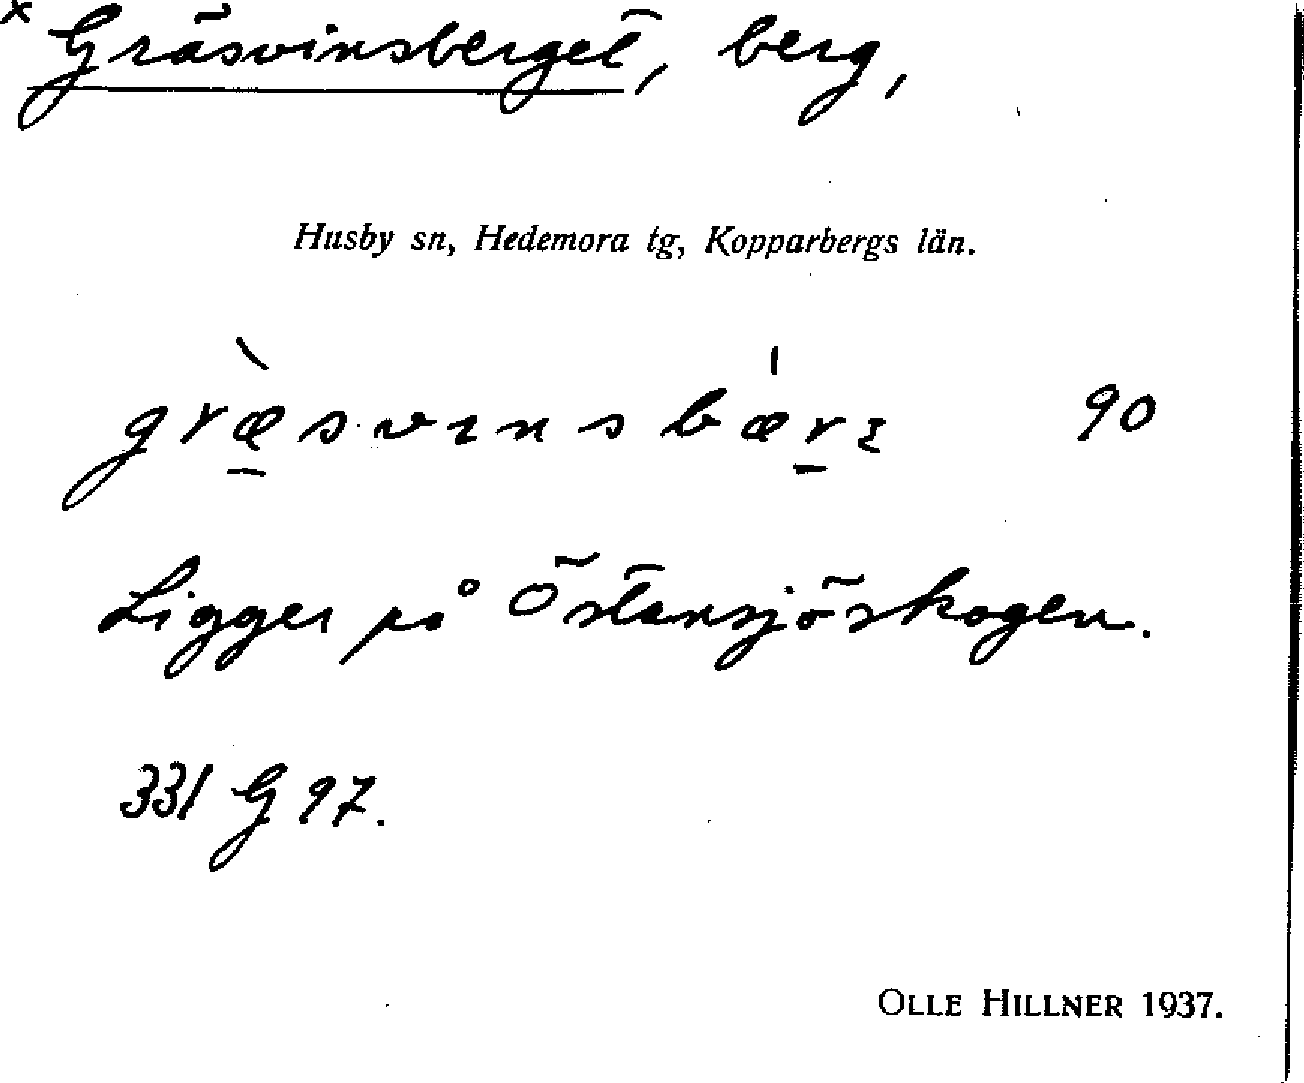 × Gräsvinsberget, berg,
Husby sn, Hedemora tg, Kopparbergs län.
græ̀svɩnsbæ̍rɩ 90
Ligger på Östansjöskogen.
331 G 97.
OLLE HILLNER 1937.